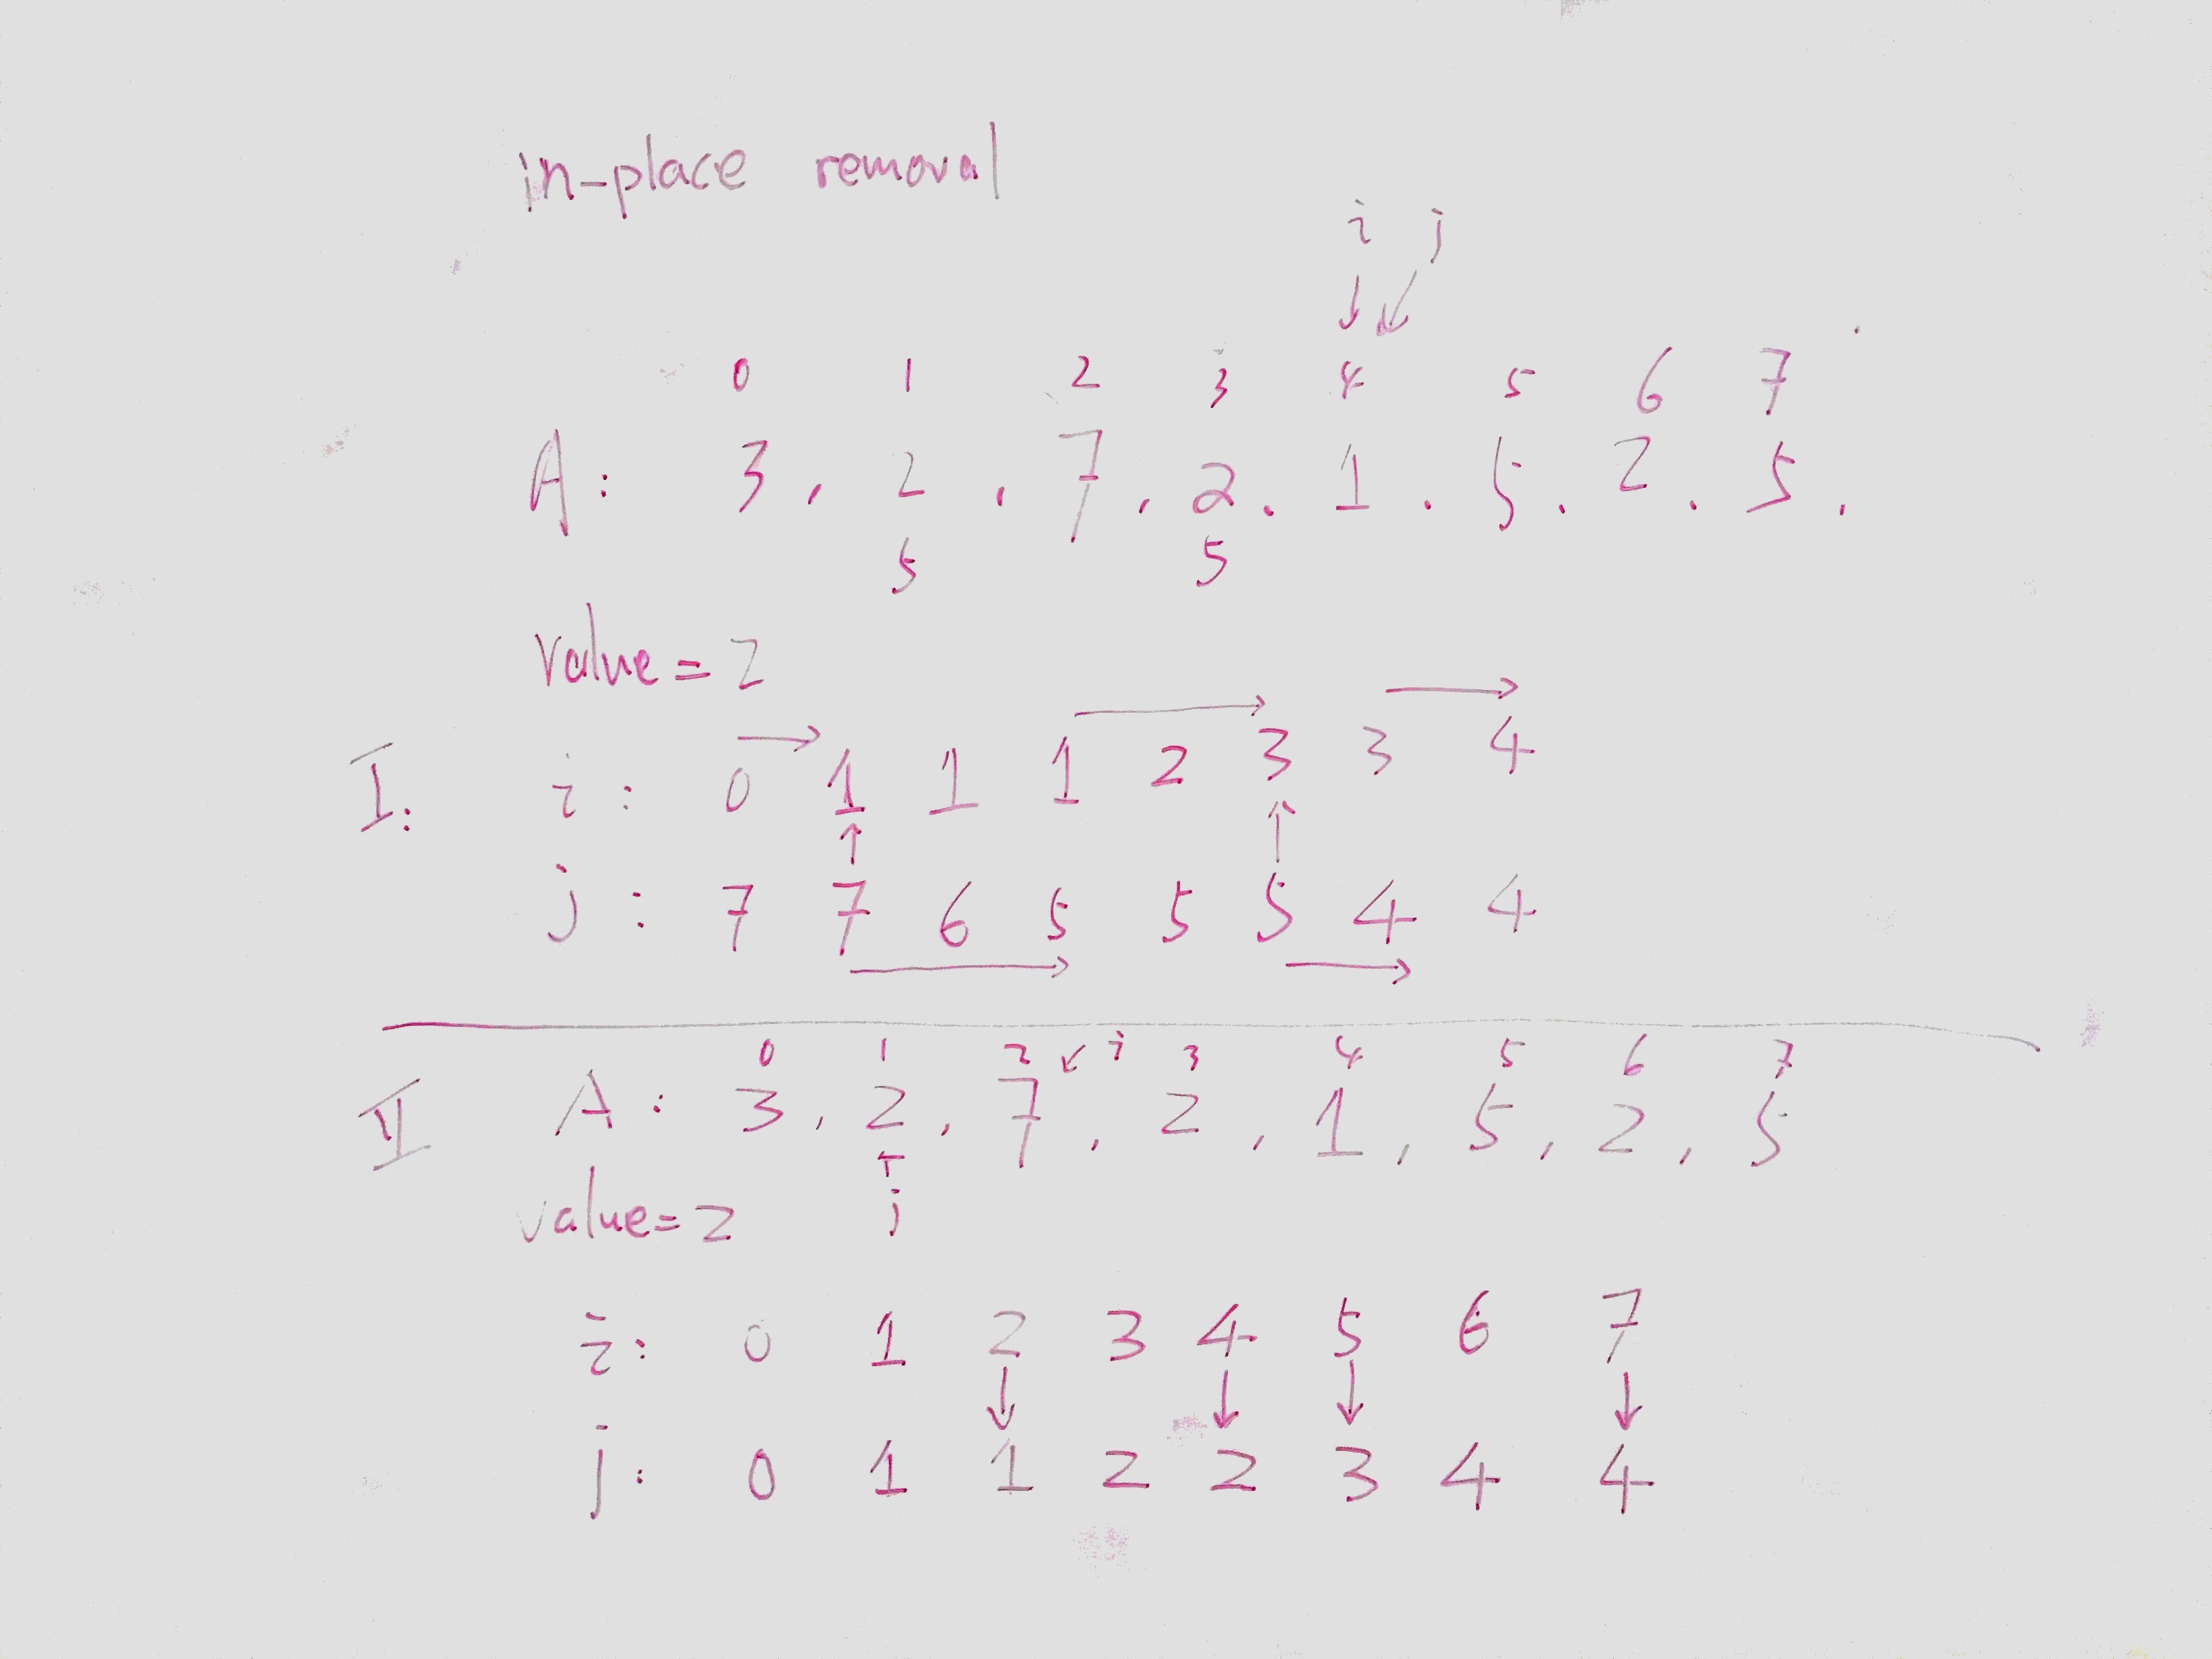 in-place removal
i j
0 1 2 3 4 5 6 7
A: 3, 2, 7, 2, 1, 5, 2, 5,
5 5
value=2
I: i: 0 1 1 1 2 3 3 4
j: 7 7 6 5 5 5 4 4
0 1 2 i 3 4 5 6 7
II A: 3, 2, 7, 2, 1, 5, 2, 5
value=2 j
i: 0 1 2 3 4 5 6 7
j: 0 1 1 2 2 3 4 4